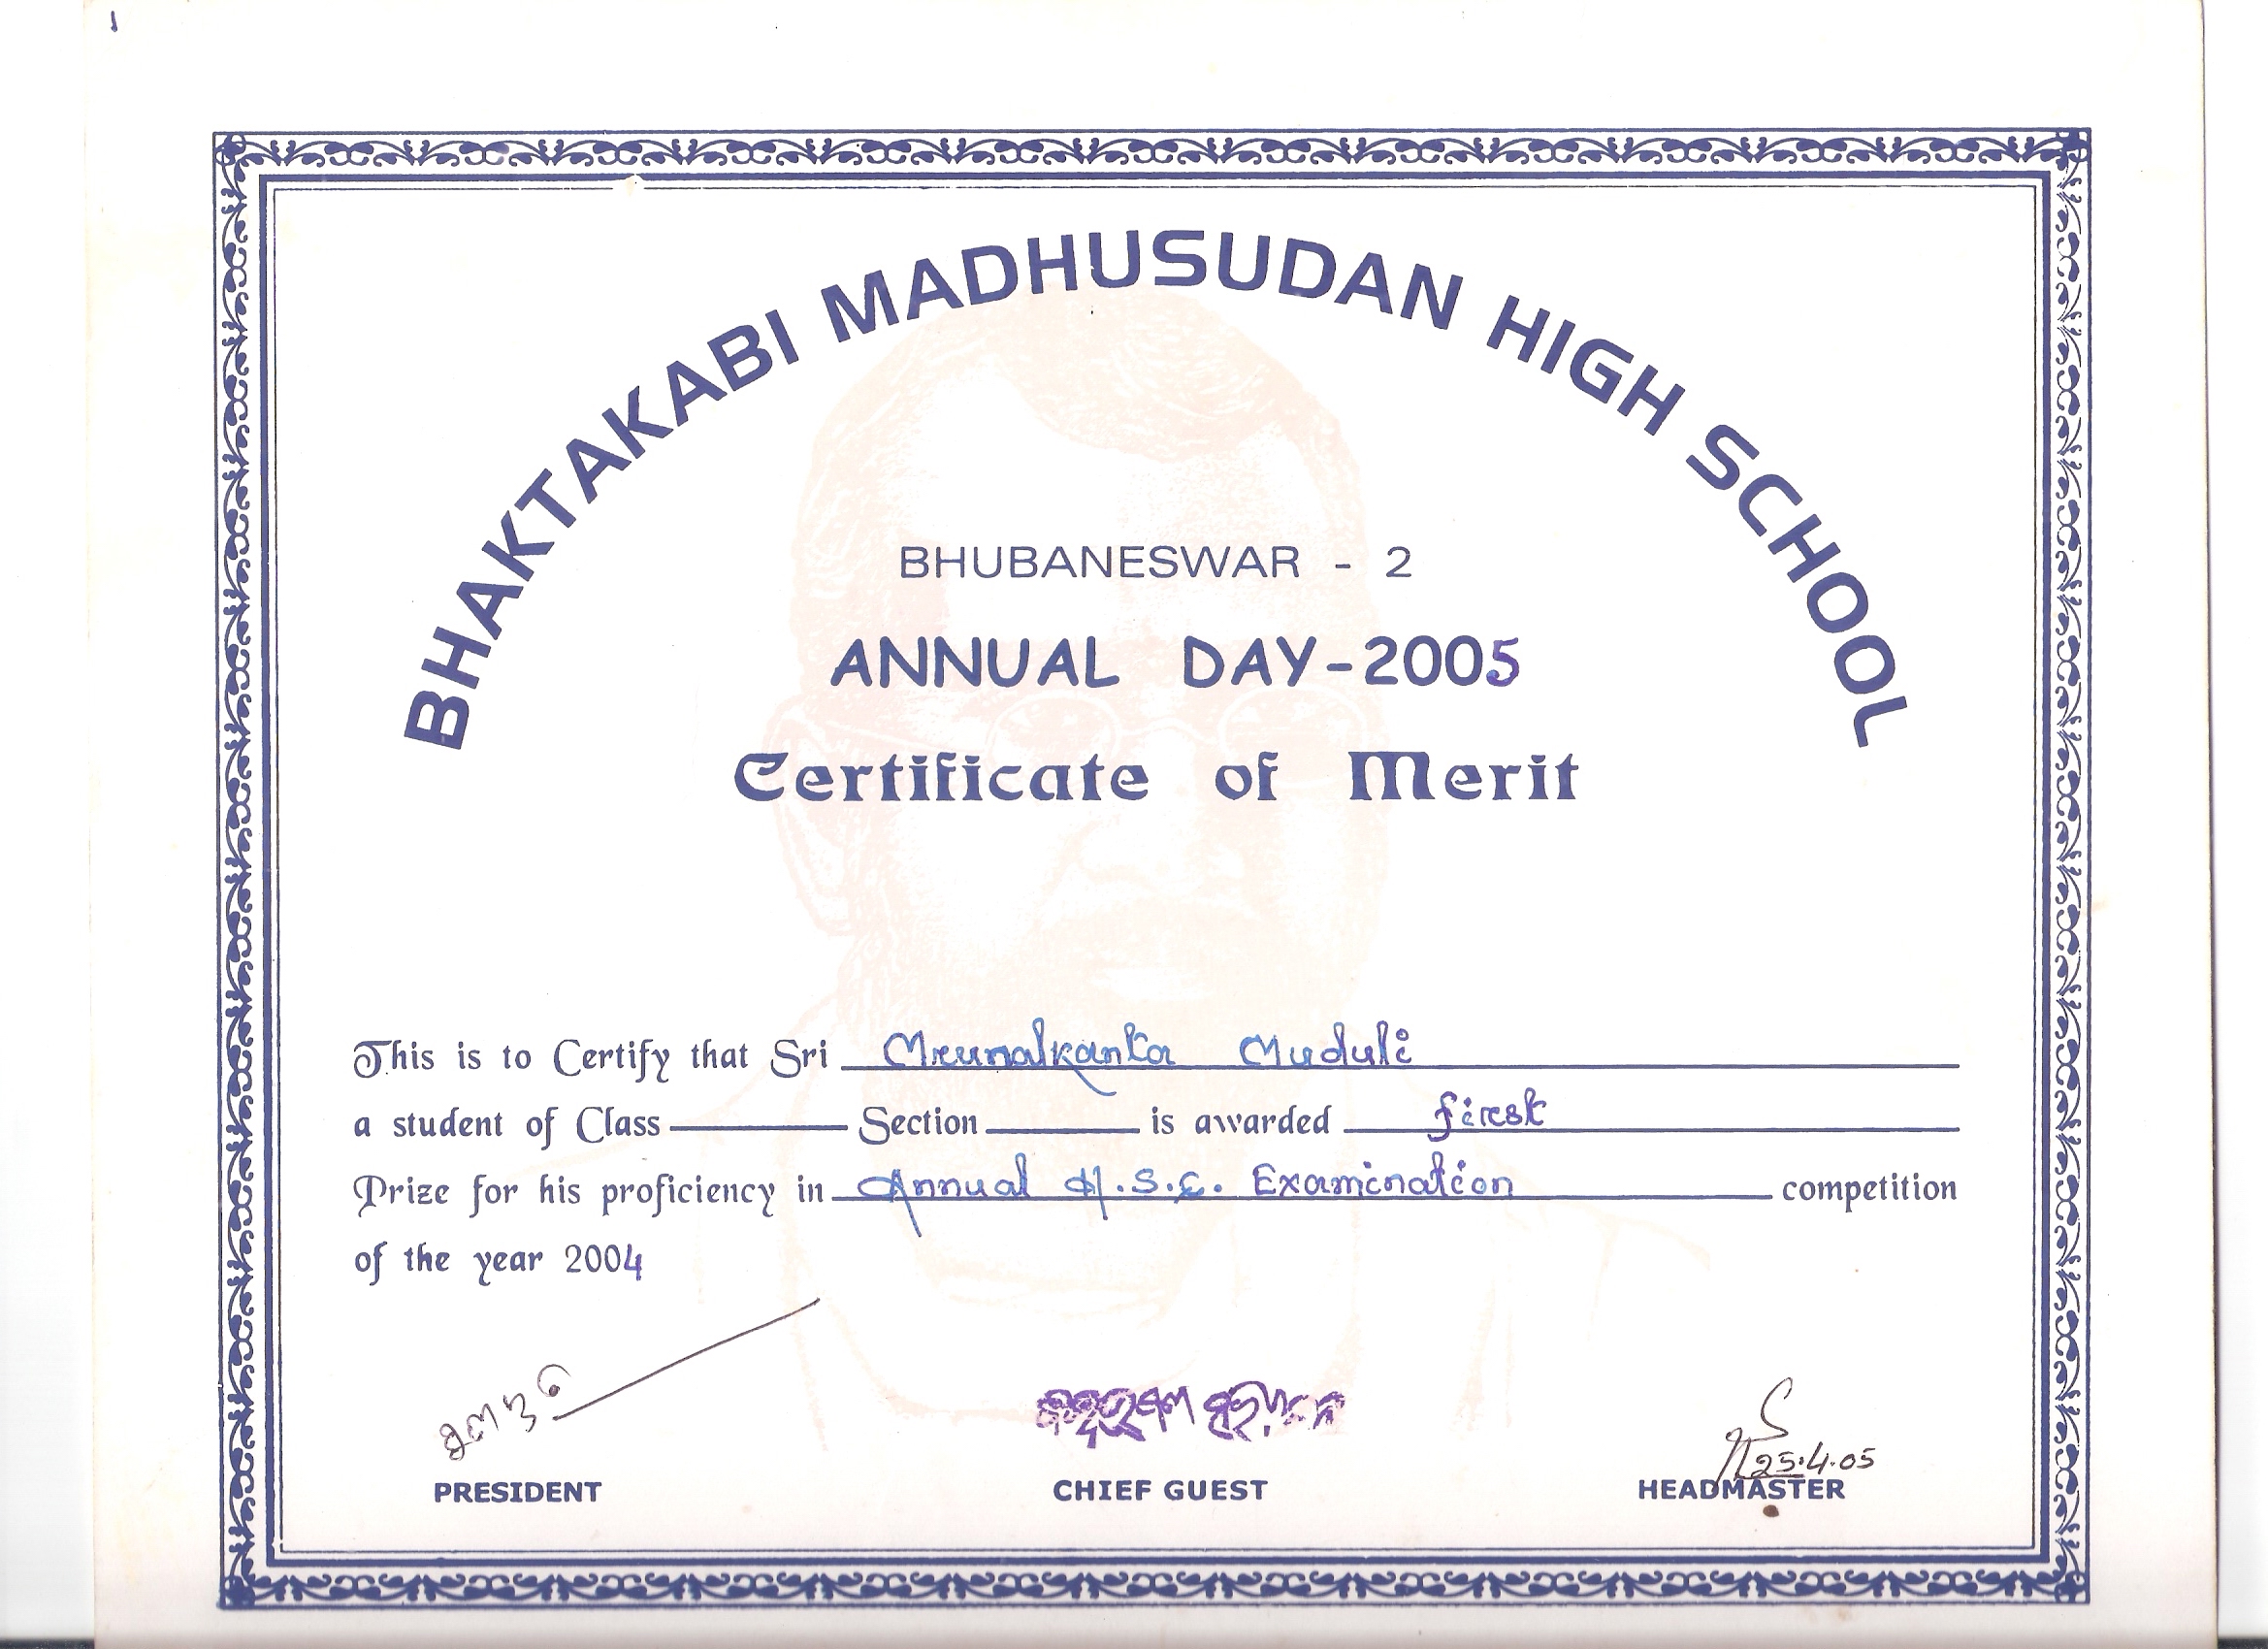 BHAKTAKABI MADHUSUDAN HIGH SCHOOL
BHUBANESWAR - 2
ANNUAL DAY-2005
Certificate of Merit
This is to Certify that Sri Mrunalkanta Muduli
a student of Class Section is awarded first
Prize for his proficiency in Annual H.S.C. Examination competition
of the year 2004
25.4.05
PRESIDENT CHIEF GUEST HEADMASTER